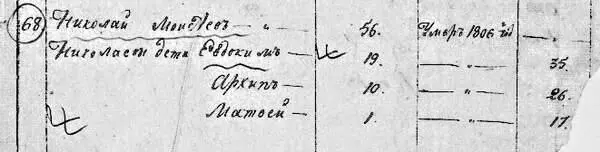 68 Николай Моисеевъ — „ — 56. Умеръ 1806 — „ —
Николаевы дети Евдокимъ — 19. — „ — 35.
Архипъ — 10. — „ — 26.
Матвей — 1. — „ — 17.